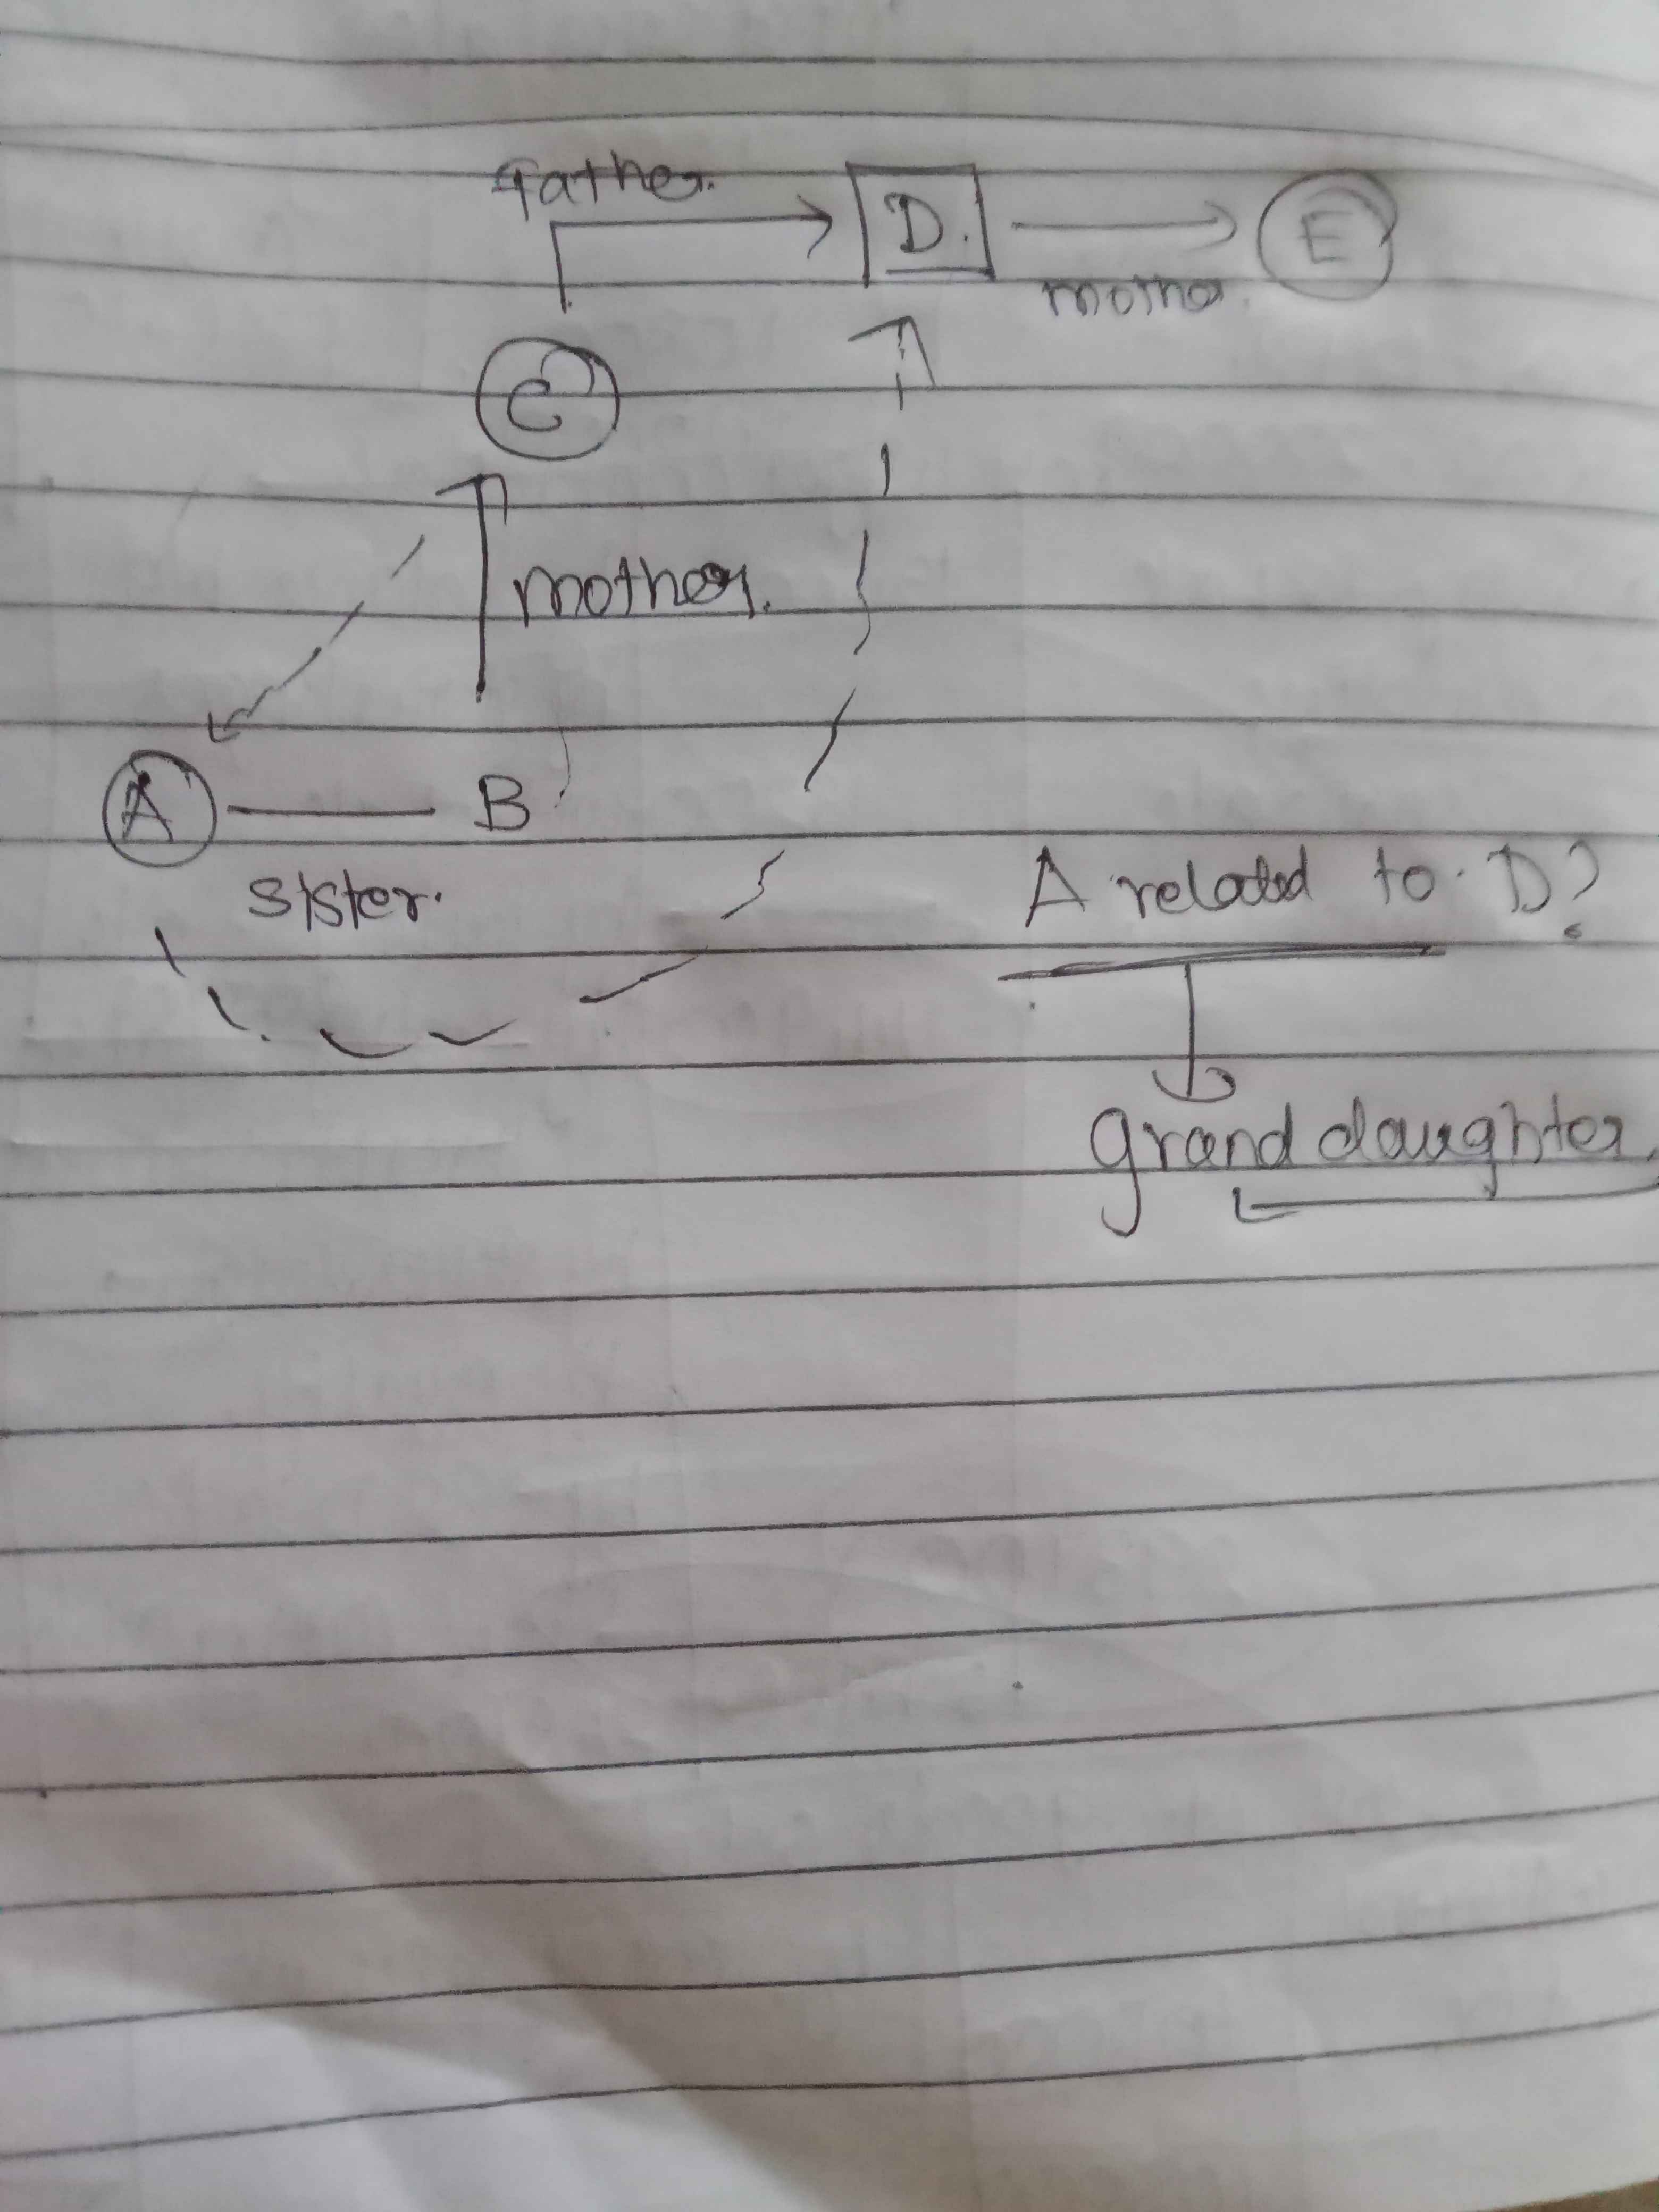 Father.
D.
E
mother.
C
mother.
A
B
sister.
A related to D?
grand daughter.